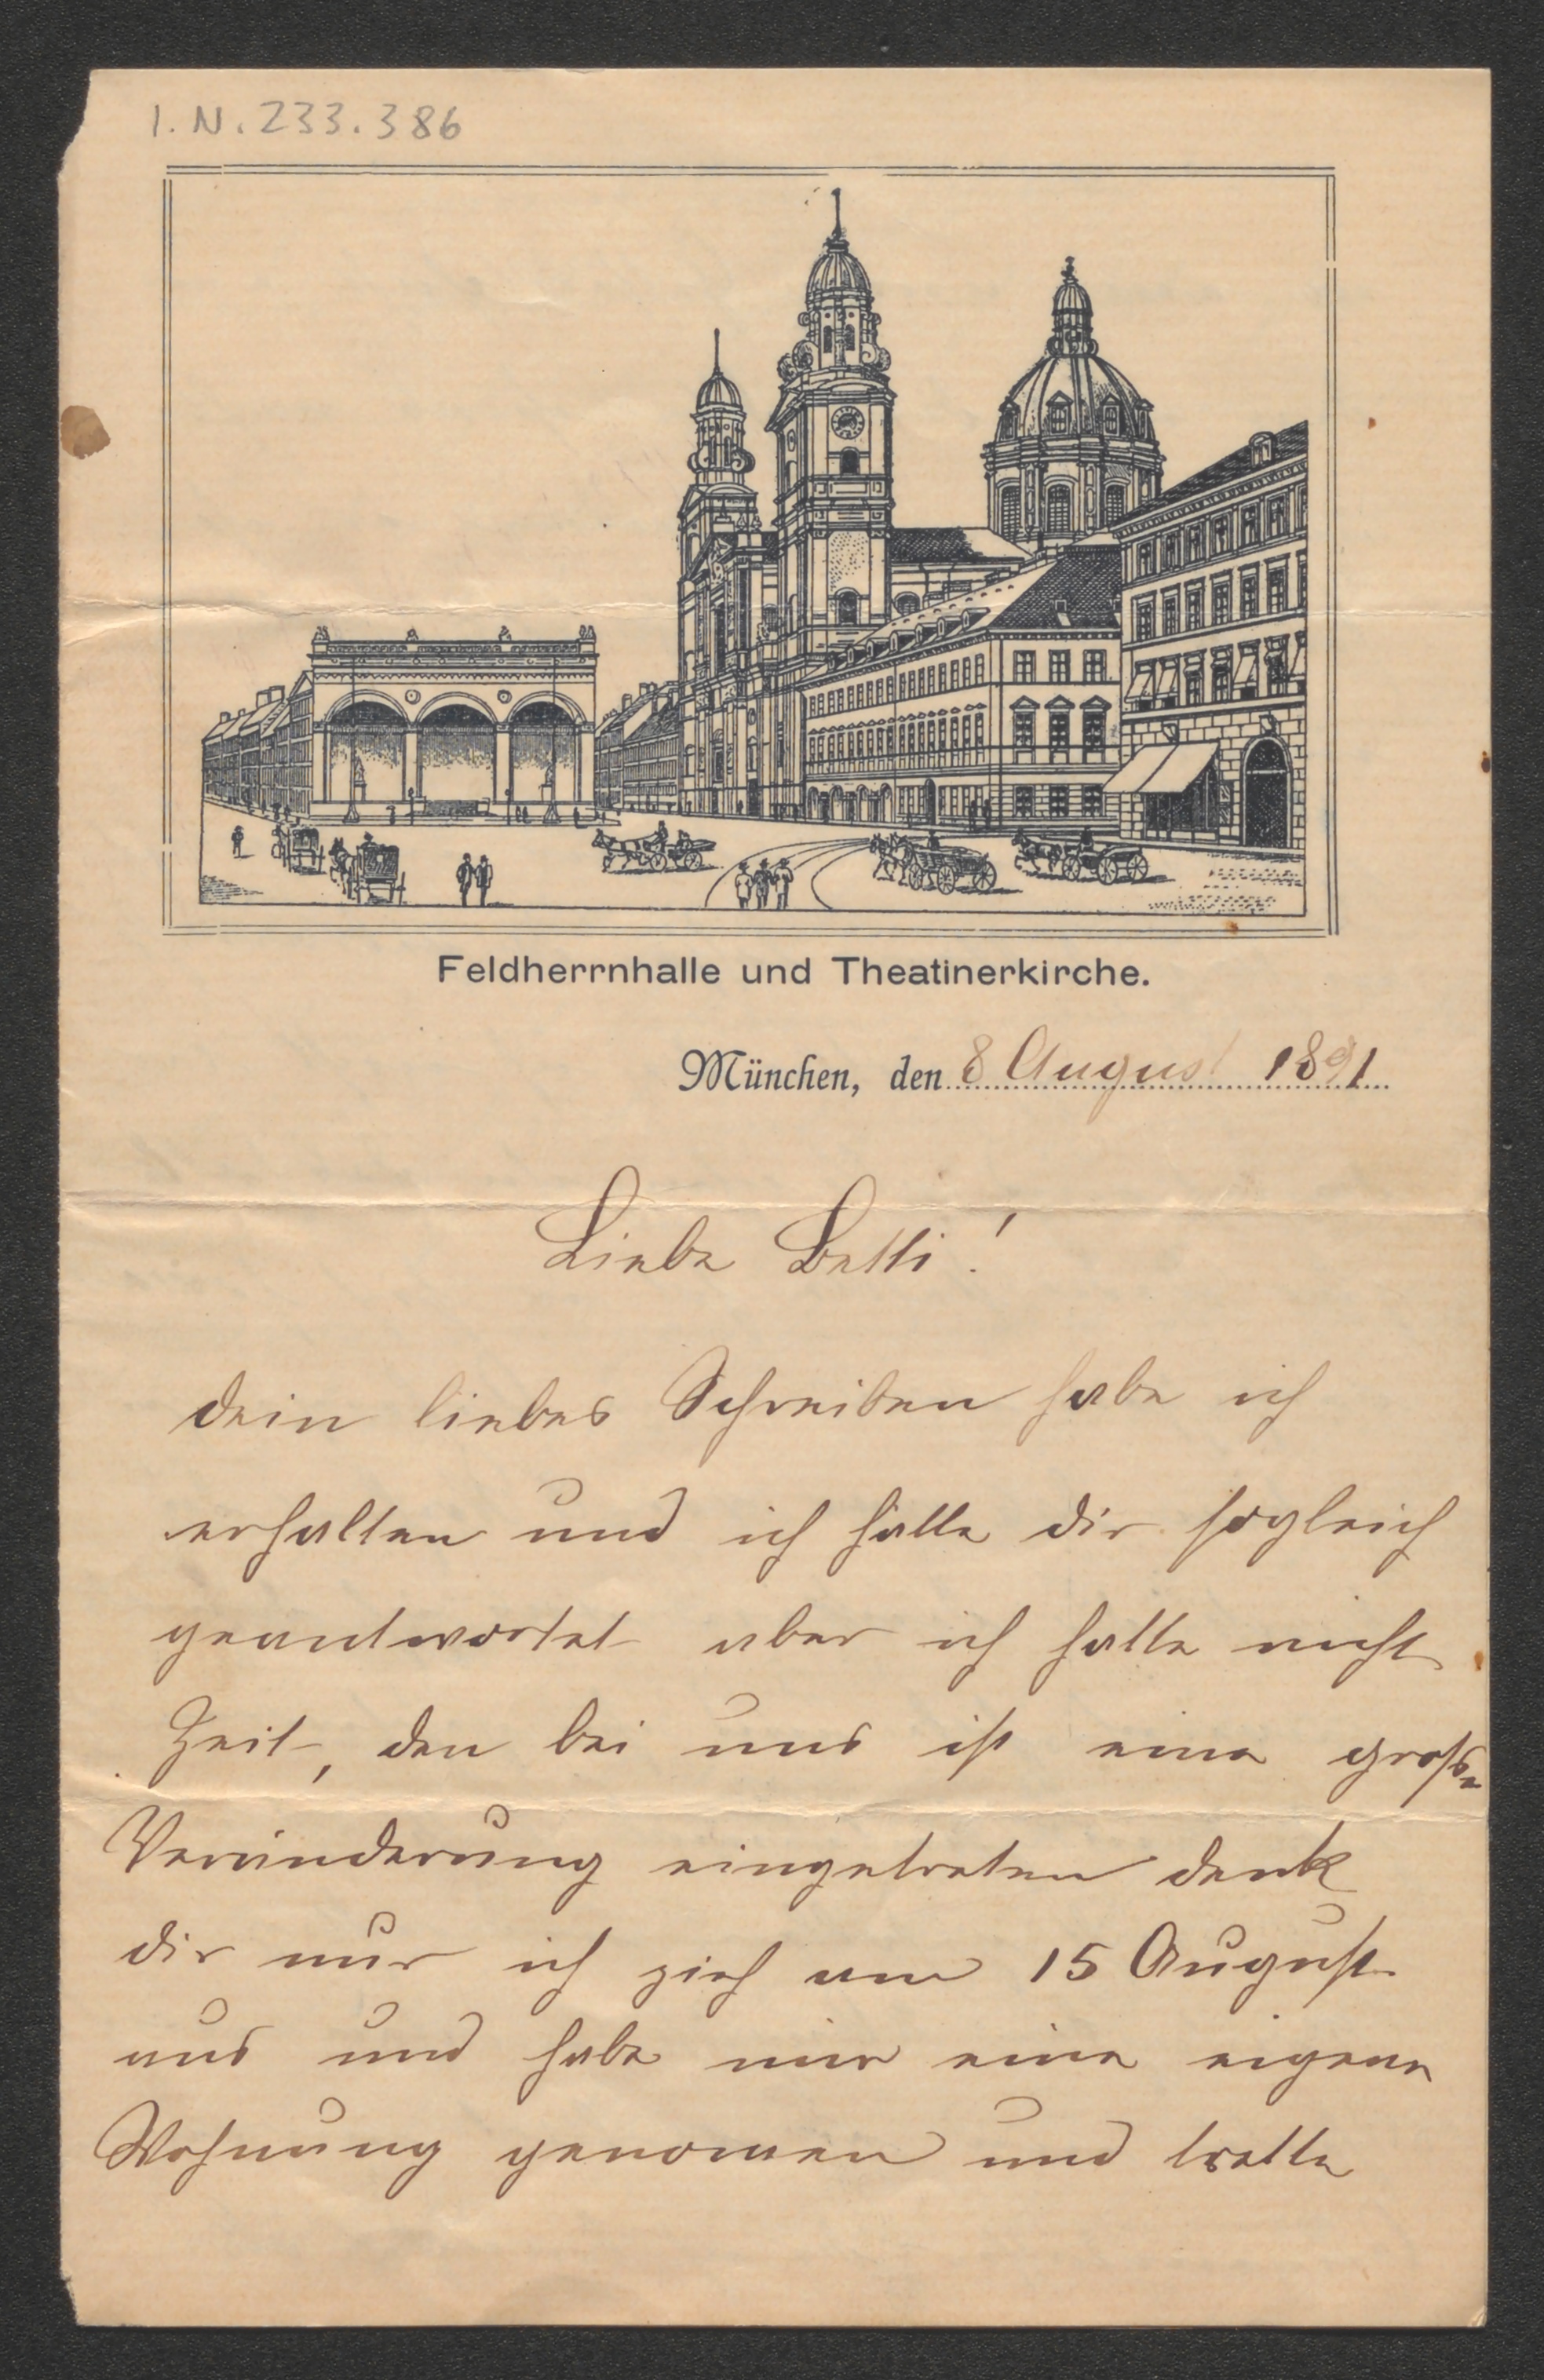 I.N.233.386
Feldherrnhalle und Theatinerkirche.
München, den 8 August 1891
Liebe Betti!
dein liebes Schreiben habe ich
erhalten und ich hätte dir sogleich
geantwortet aber ich hatte nicht
Zeit, den bei uns ist eine große
Veränderung eingetreten denk
dir nur ich zieh am 15 August
aus und habe mir eine eigene
Wohnung genomen und trette